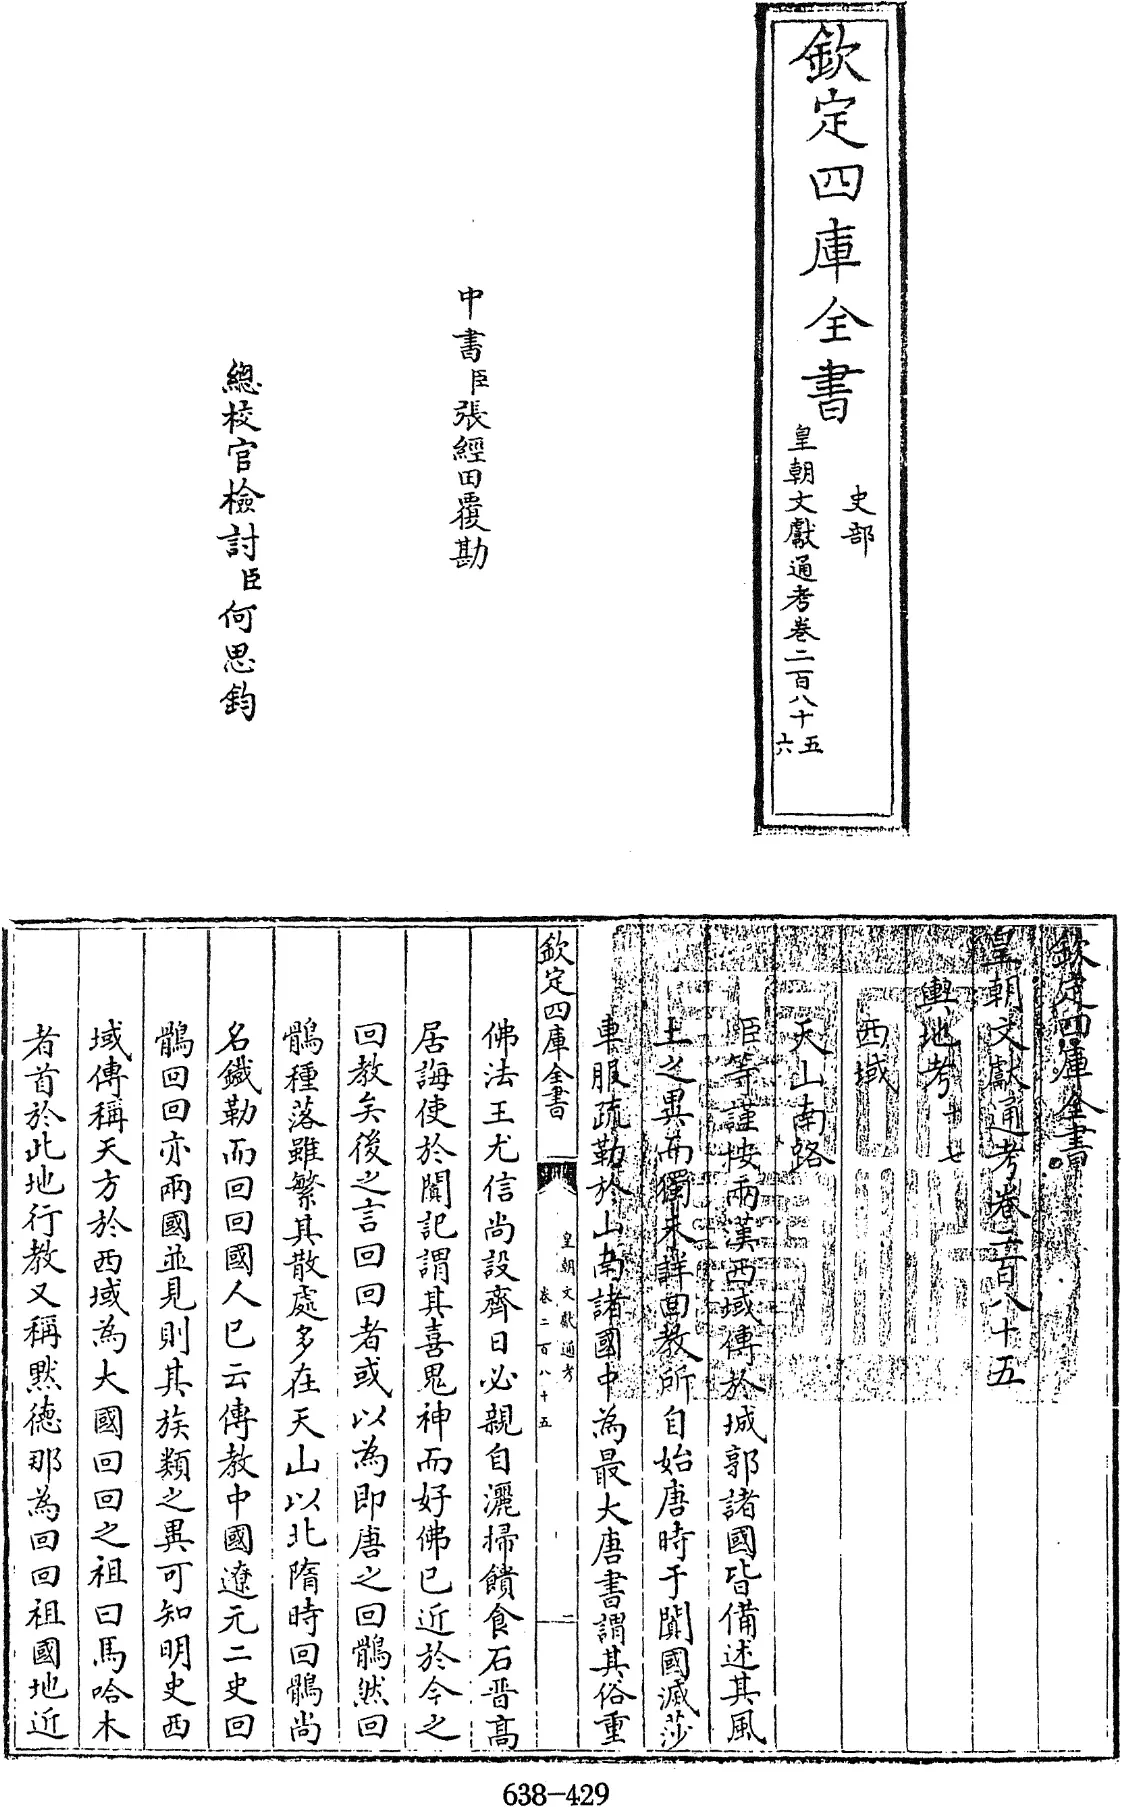 欽定四庫全書
史部
皇朝文獻通考卷二百八十五
六
中書臣張經田覆勘
總校官檢討臣何思鈞
欽定四庫全書
皇朝文獻通考卷二百八十五
輿地考十七
西域
天山南路
臣等謹按兩漢西域傳於城郭諸國皆備述其風
土之異而獨未詳回教所自始唐時于闐國滅莎
車服疏勒於山南諸國中為最大唐書謂其俗重
欽定四庫全書
皇朝文獻通考
卷二百八十五
二
佛法王尤信尚設齋日必親自灑掃饋食石晉高
居誨使於闐記謂其喜鬼神而好佛已近於今之
回教矣後之言回回者或以為即唐之回鶻然回
鶻種落雖繁其散處多在天山以北隋時回鶻尚
名鐵勒而回回國人已云傳教中國遼元二史回
鶻回回亦兩國並見則其族類之異可知明史西
域傳稱天方於西域為大國回回之祖曰馬哈木
者首於此地行教又稱默德那為回回祖國地近
638-429